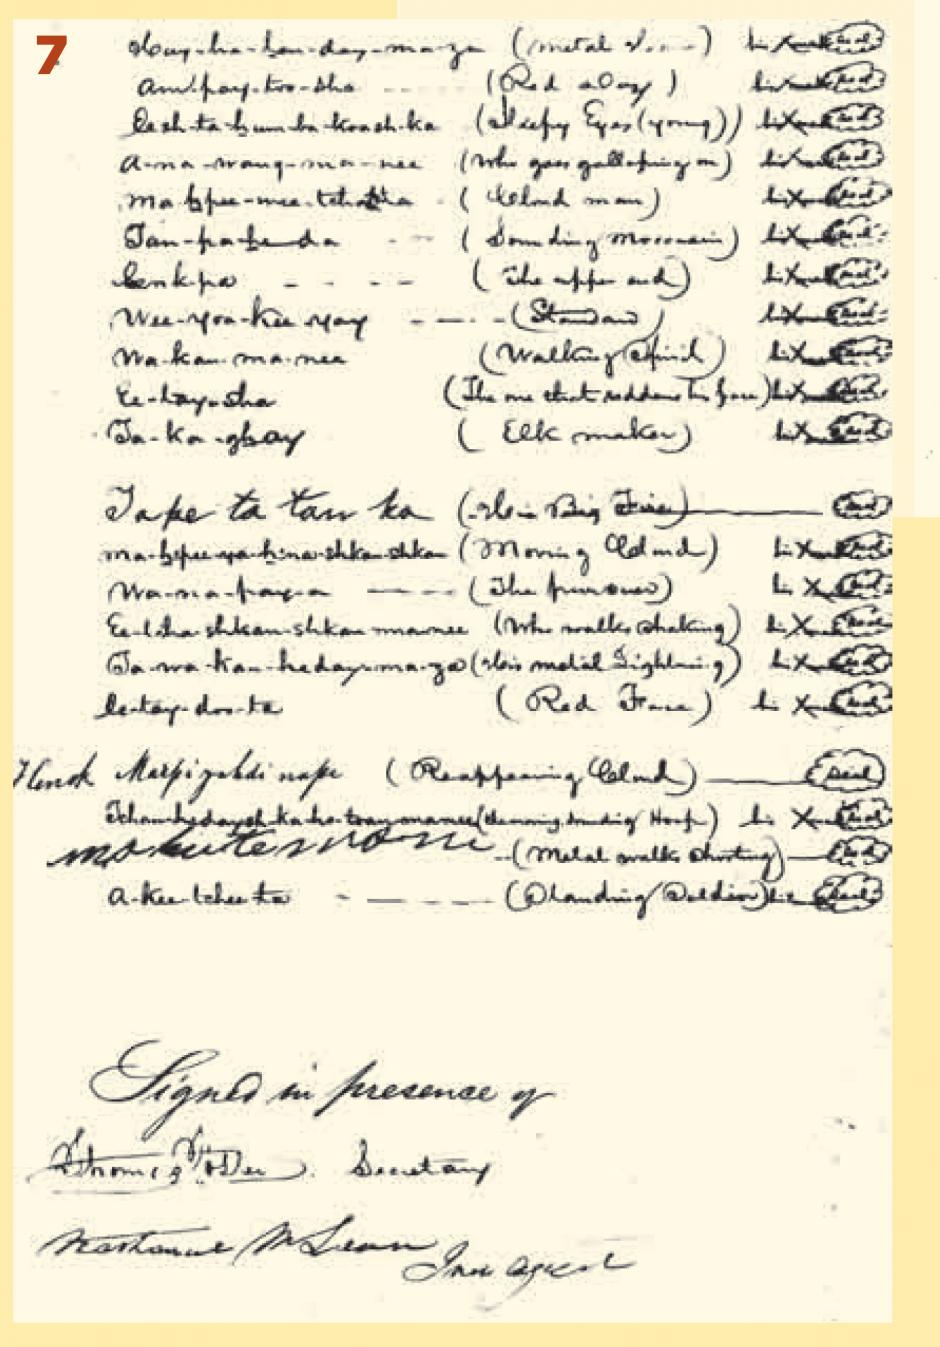 (Metal Horn) his X mark (seal)
Am-pay-too-sha - - - - (Red day) his X mark (seal)
Eesh-ta-hum-ba-koash-ka (Sleepy Eyes (young)) his X mark (seal)
A-na-wang-ma-nee (Who goes galloping on) his X mark (seal)
Ma-hpee-wee-tchashta - (Cloud man) his X mark (seal)
Tan-pa-hee-da - - - (Sounding Moccasin) his X mark (seal)
Eenk-pa - - - - (The upper end) his X mark (seal)
Wee-yoa-kee-yay - - - - (Standard) his X mark (seal)
Wa-kan-ma-nee (Walking Spirit) his X mark (seal)
Ee-tay-sha (The one that reddens his face) his X mark (seal)
Ta-ka-ghay (Elk maker) his X mark (seal)
Tape ta tan ka (His Big Fire) (seal)
Ma-hpee-ya-hna-shkan-shkan (Moving Cloud) his X mark (seal)
Wa-na-pay-a - - - - (The pursuer) his X mark (seal)
Ee-tcha-shkan-shkan-ma-nee (Who walks shaking) his X mark (seal)
Ta-wa-kan-he-day-ma-za (His metal Lightning) his X mark (seal)
Ee-tay-doo-ta (Red Face) his X mark (seal)
Henok Marpiyahdi nape (Reappearing Cloud) (seal)
Tchan-hedaysh-ka-ho-toay-ma-nee his X mark (seal)
Mazakutemani (Metal walks shooting) (seal)
A-kee-tchee-ta - - - - - (Standing Soldier) his (seal)
Signed in presence of
Thomas Foster. Secretary
Nathaniel McLean Ind agent
7